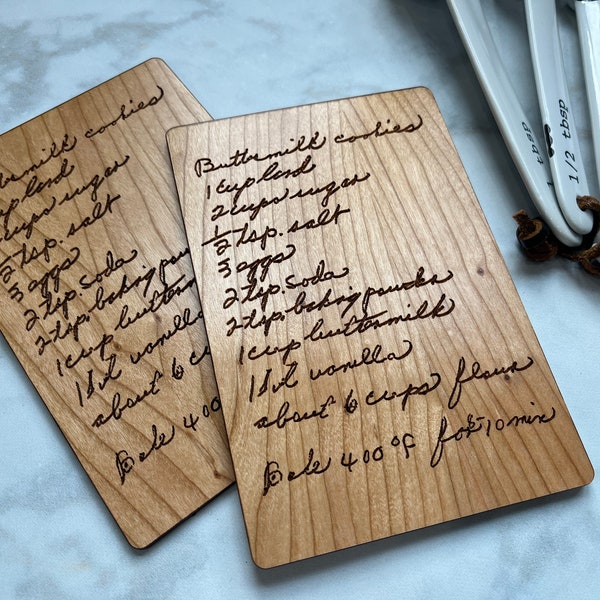 Buttermilk cookies
1 cup lard
2 cups sugar
1/2 tsp. salt
3 eggs
2 tsp. soda
2 tsp. baking powder
1 cup buttermilk
vanilla
about 6 cups flour
Bake 400°F for 10 min
ttermilk cookies
up lard
cups sugar
tsp. salt
3 eggs
2 tsp. soda
2 tsp. baking powde
1 cup buttermi
vanilla
about 6 c
Bake 400
1/2 tbsp